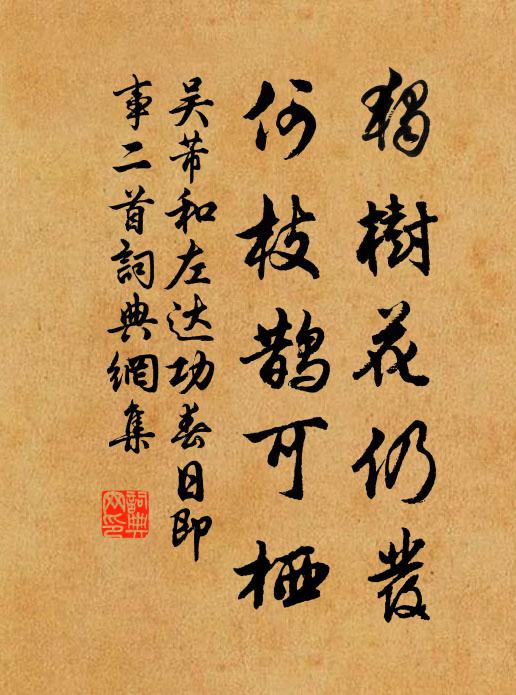 獨樹花仍發
何枝鵲可栖
吴芾和左达功春日即
事二首詞典網集
詞典
网印